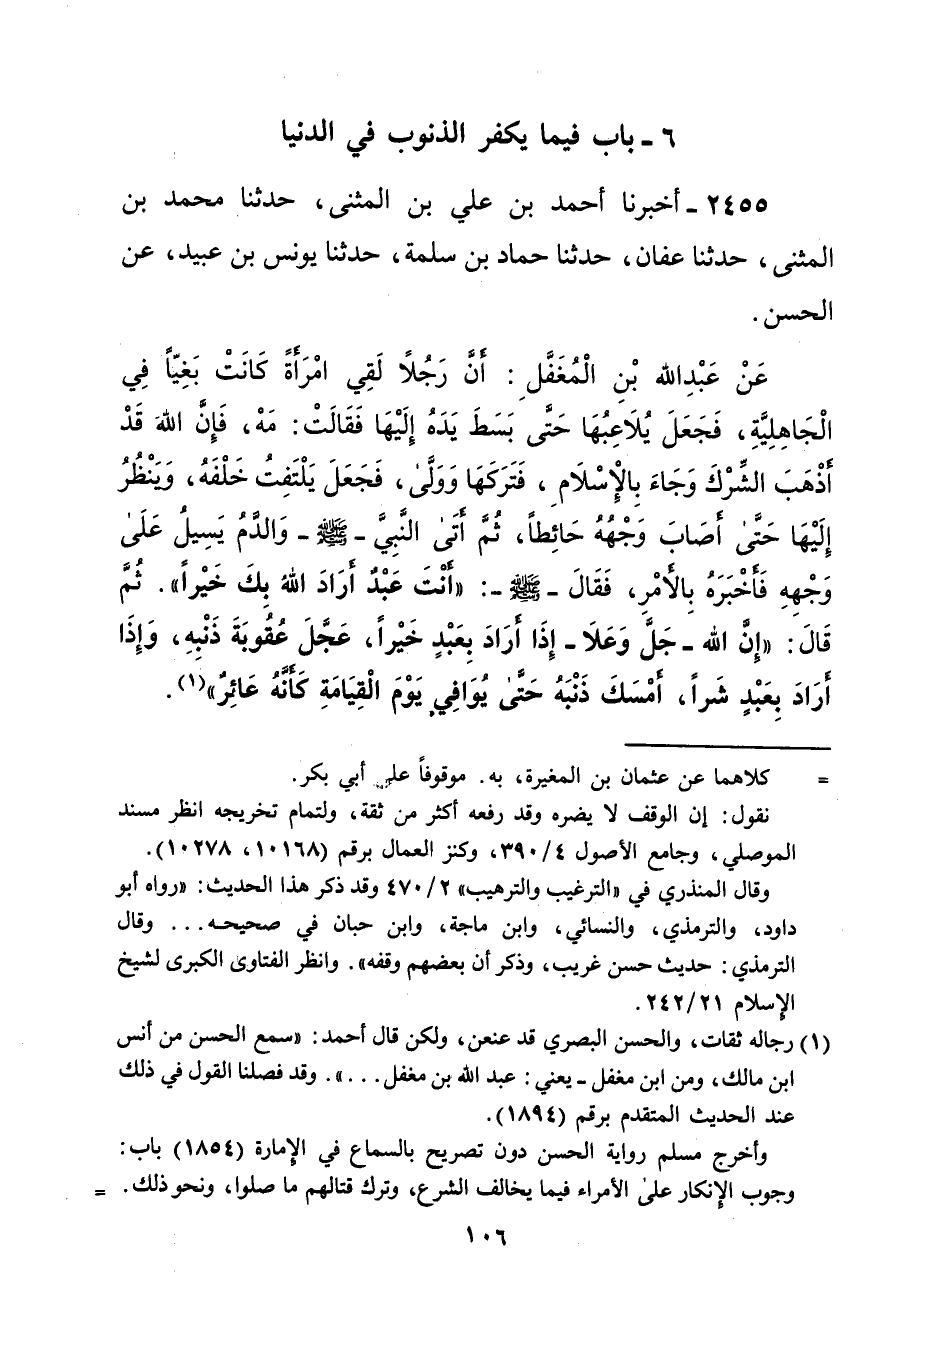 ٦ ـ باب فيما يكفر الذنوب في الدنيا
٢٤٥٥ ـ أخبرنا أحمد بن علي بن المثنى، حدثنا محمد بن
المثنى، حدثنا عفان، حدثنا حماد بن سلمة، حدثنا يونس بن عبيد، عن
الحسن.
عَنْ عَبْدِالله بْنِ الْمُغَفَّلِ: أَنَّ رَجُلًا لَقِي امْرَأَةً كَانَتْ بَغِيّاً فِي
الْجَاهِلِيَّةِ، فَجَعَلَ يُلَاعِبُهَا حَتَّى بَسَطَ يَدَهُ إِلَيْهَا فَقَالَتْ: مَهْ، فَإِنَّ اللهَ قَدْ
أَذْهَبَ الشِّرْكَ وَجَاءَ بِالْإِسْلَامِ، فَتَرَكَهَا وَوَلَّىٰ، فَجَعَلَ يَلْتَفِتُ خَلْفَهُ، وَيَنْظُرُ
إِلَيْهَا حَتَّىٰ أَصَابَ وَجْهُهُ حَائِطاً، ثُمَّ أَتَىٰ النَّبِيَّ ـ ﷺ ـ وَالدَّمُ يَسِيلُ عَلَىٰ
وَجْهِهِ فَأَخْبَرَهُ بِالأَمْرِ، فَقَالَ ـ ﷺ ـ: «أَنْتَ عَبْدٌ أَرَادَ اللهُ بِكَ خَيْراً». ثُمَّ
قَالَ: «إِنَّ الله ـ جَلَّ وَعَلَا ـ إِذَا أَرَادَ بِعَبْدٍ خَيْراً، عَجَّلَ عُقُوبَةَ ذَنْبِهِ، وَإِذَا
أَرَادَ بِعَبْدٍ شَراً، أَمْسَكَ ذَنْبَهُ حَتَّىٰ يُوَافِي يَوْمَ الْقِيَامَةِ كَأَنَّهُ عَائِرٌ»(١).
= كلاهما عن عثمان بن المغيرة، به. موقوفاً على أبي بكر.
نقول: إن الوقف لا يضره وقد رفعه أكثر من ثقة، ولتمام تخريجه انظر مسند
الموصلي، وجامع الأصول ٣٩٠/٤، وكنز العمال برقم (١٠١٦٨، ١٠٢٧٨).
وقال المنذري في «الترغيب والترهيب» ٤٧٠/٢ وقد ذكر هذا الحديث: «رواه أبو
داود، والترمذي، والنسائي، وابن ماجة، وابن حبان في صحيحه... وقال
الترمذي: حديث حسن غريب، وذكر أن بعضهم وقفه». وانظر الفتاوى الكبرى لشيخ
الإسلام ٢٤٢/٢١.
(١) رجاله ثقات، والحسن البصري قد عنعن، ولكن قال أحمد: «سمع الحسن من أنس
ابن مالك، ومن ابن مغفل ـ يعني: عبد الله بن مغفل...». وقد فصلنا القول في ذلك
عند الحديث المتقدم برقم (١٨٩٤).
وأخرج مسلم رواية الحسن دون تصريح بالسماع في الإمارة (١٨٥٤) باب:
وجوب الإنكار علىٰ الأمراء فيما يخالف الشرع، وترك قتالهم ما صلوا، ونحو ذلك. =
١٠٦